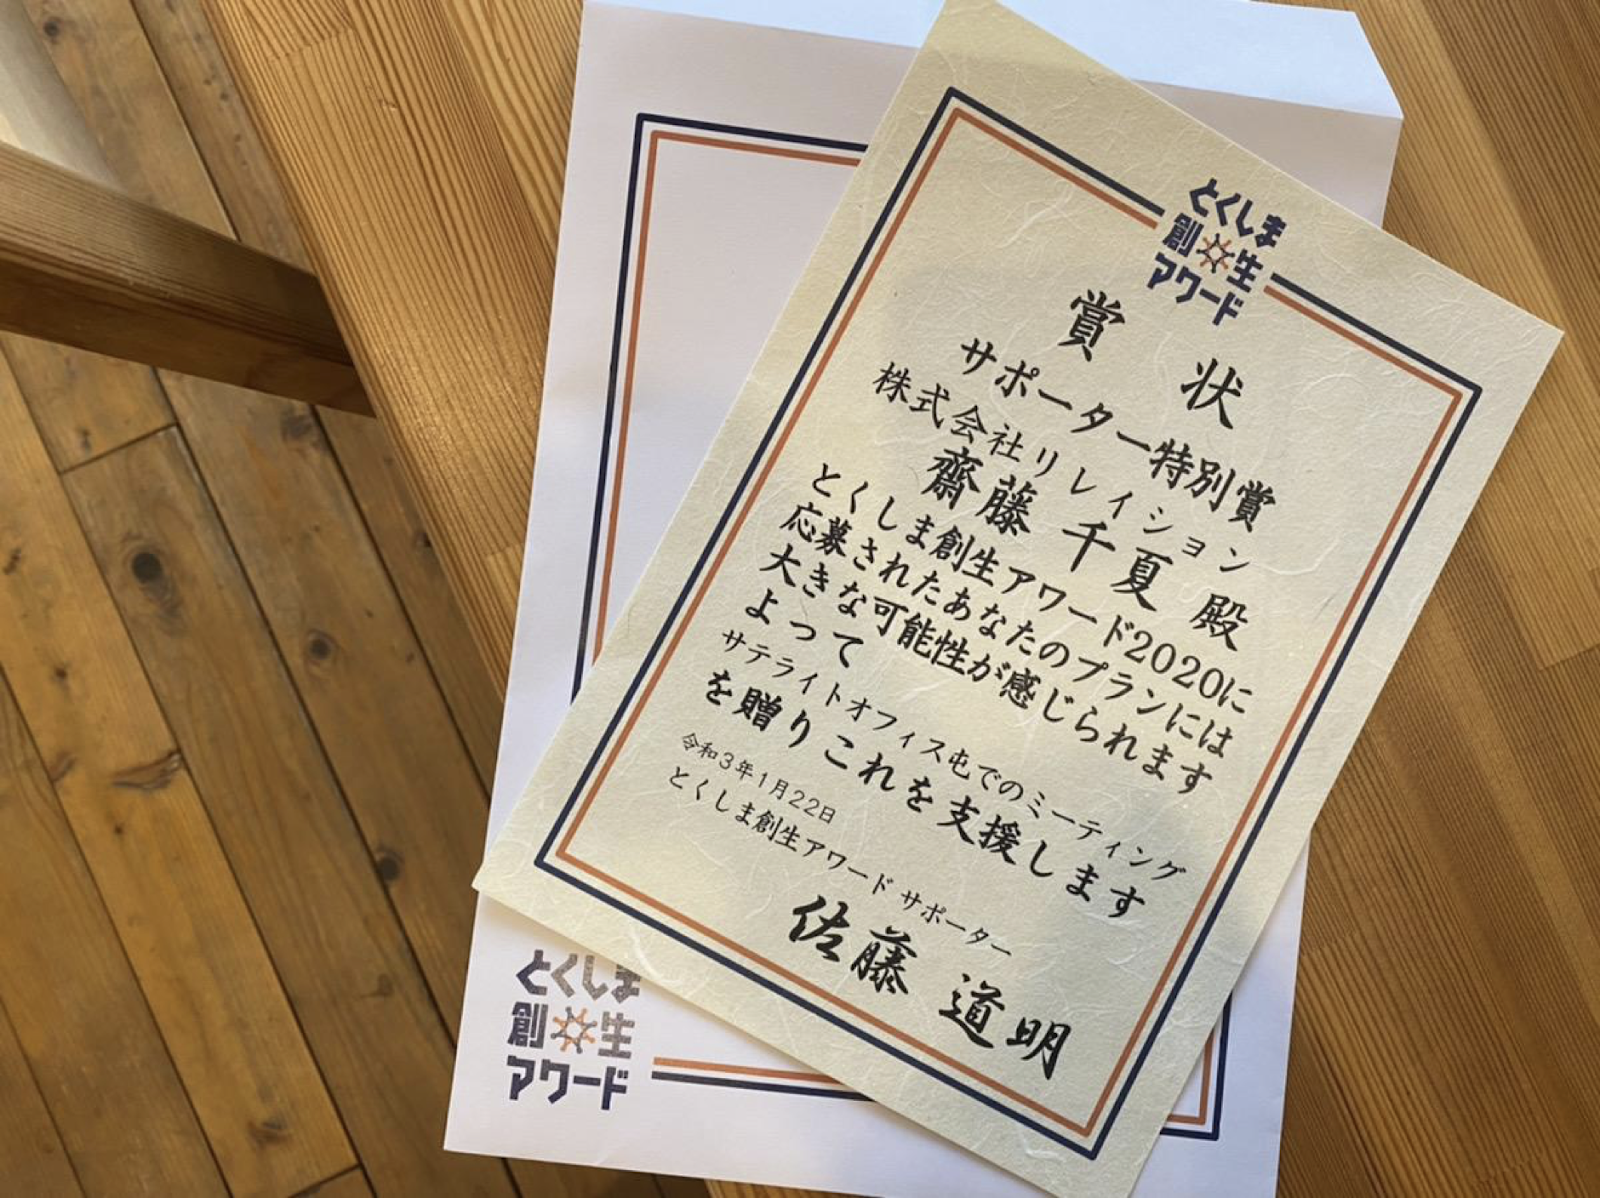 とくしま
創生
アワード
賞 状
サポーター特別賞
株式会社リレイション
齋藤 千夏 殿
とくしま創生アワード2020に
応募されたあなたのプランには
大きな可能性が感じられます
よって
サテライトオフィス屯でのミーティング
を贈りこれを支援します
令和3年1月22日
とくしま創生アワード サポーター
佐藤 道明
とくしま
創生
アワード